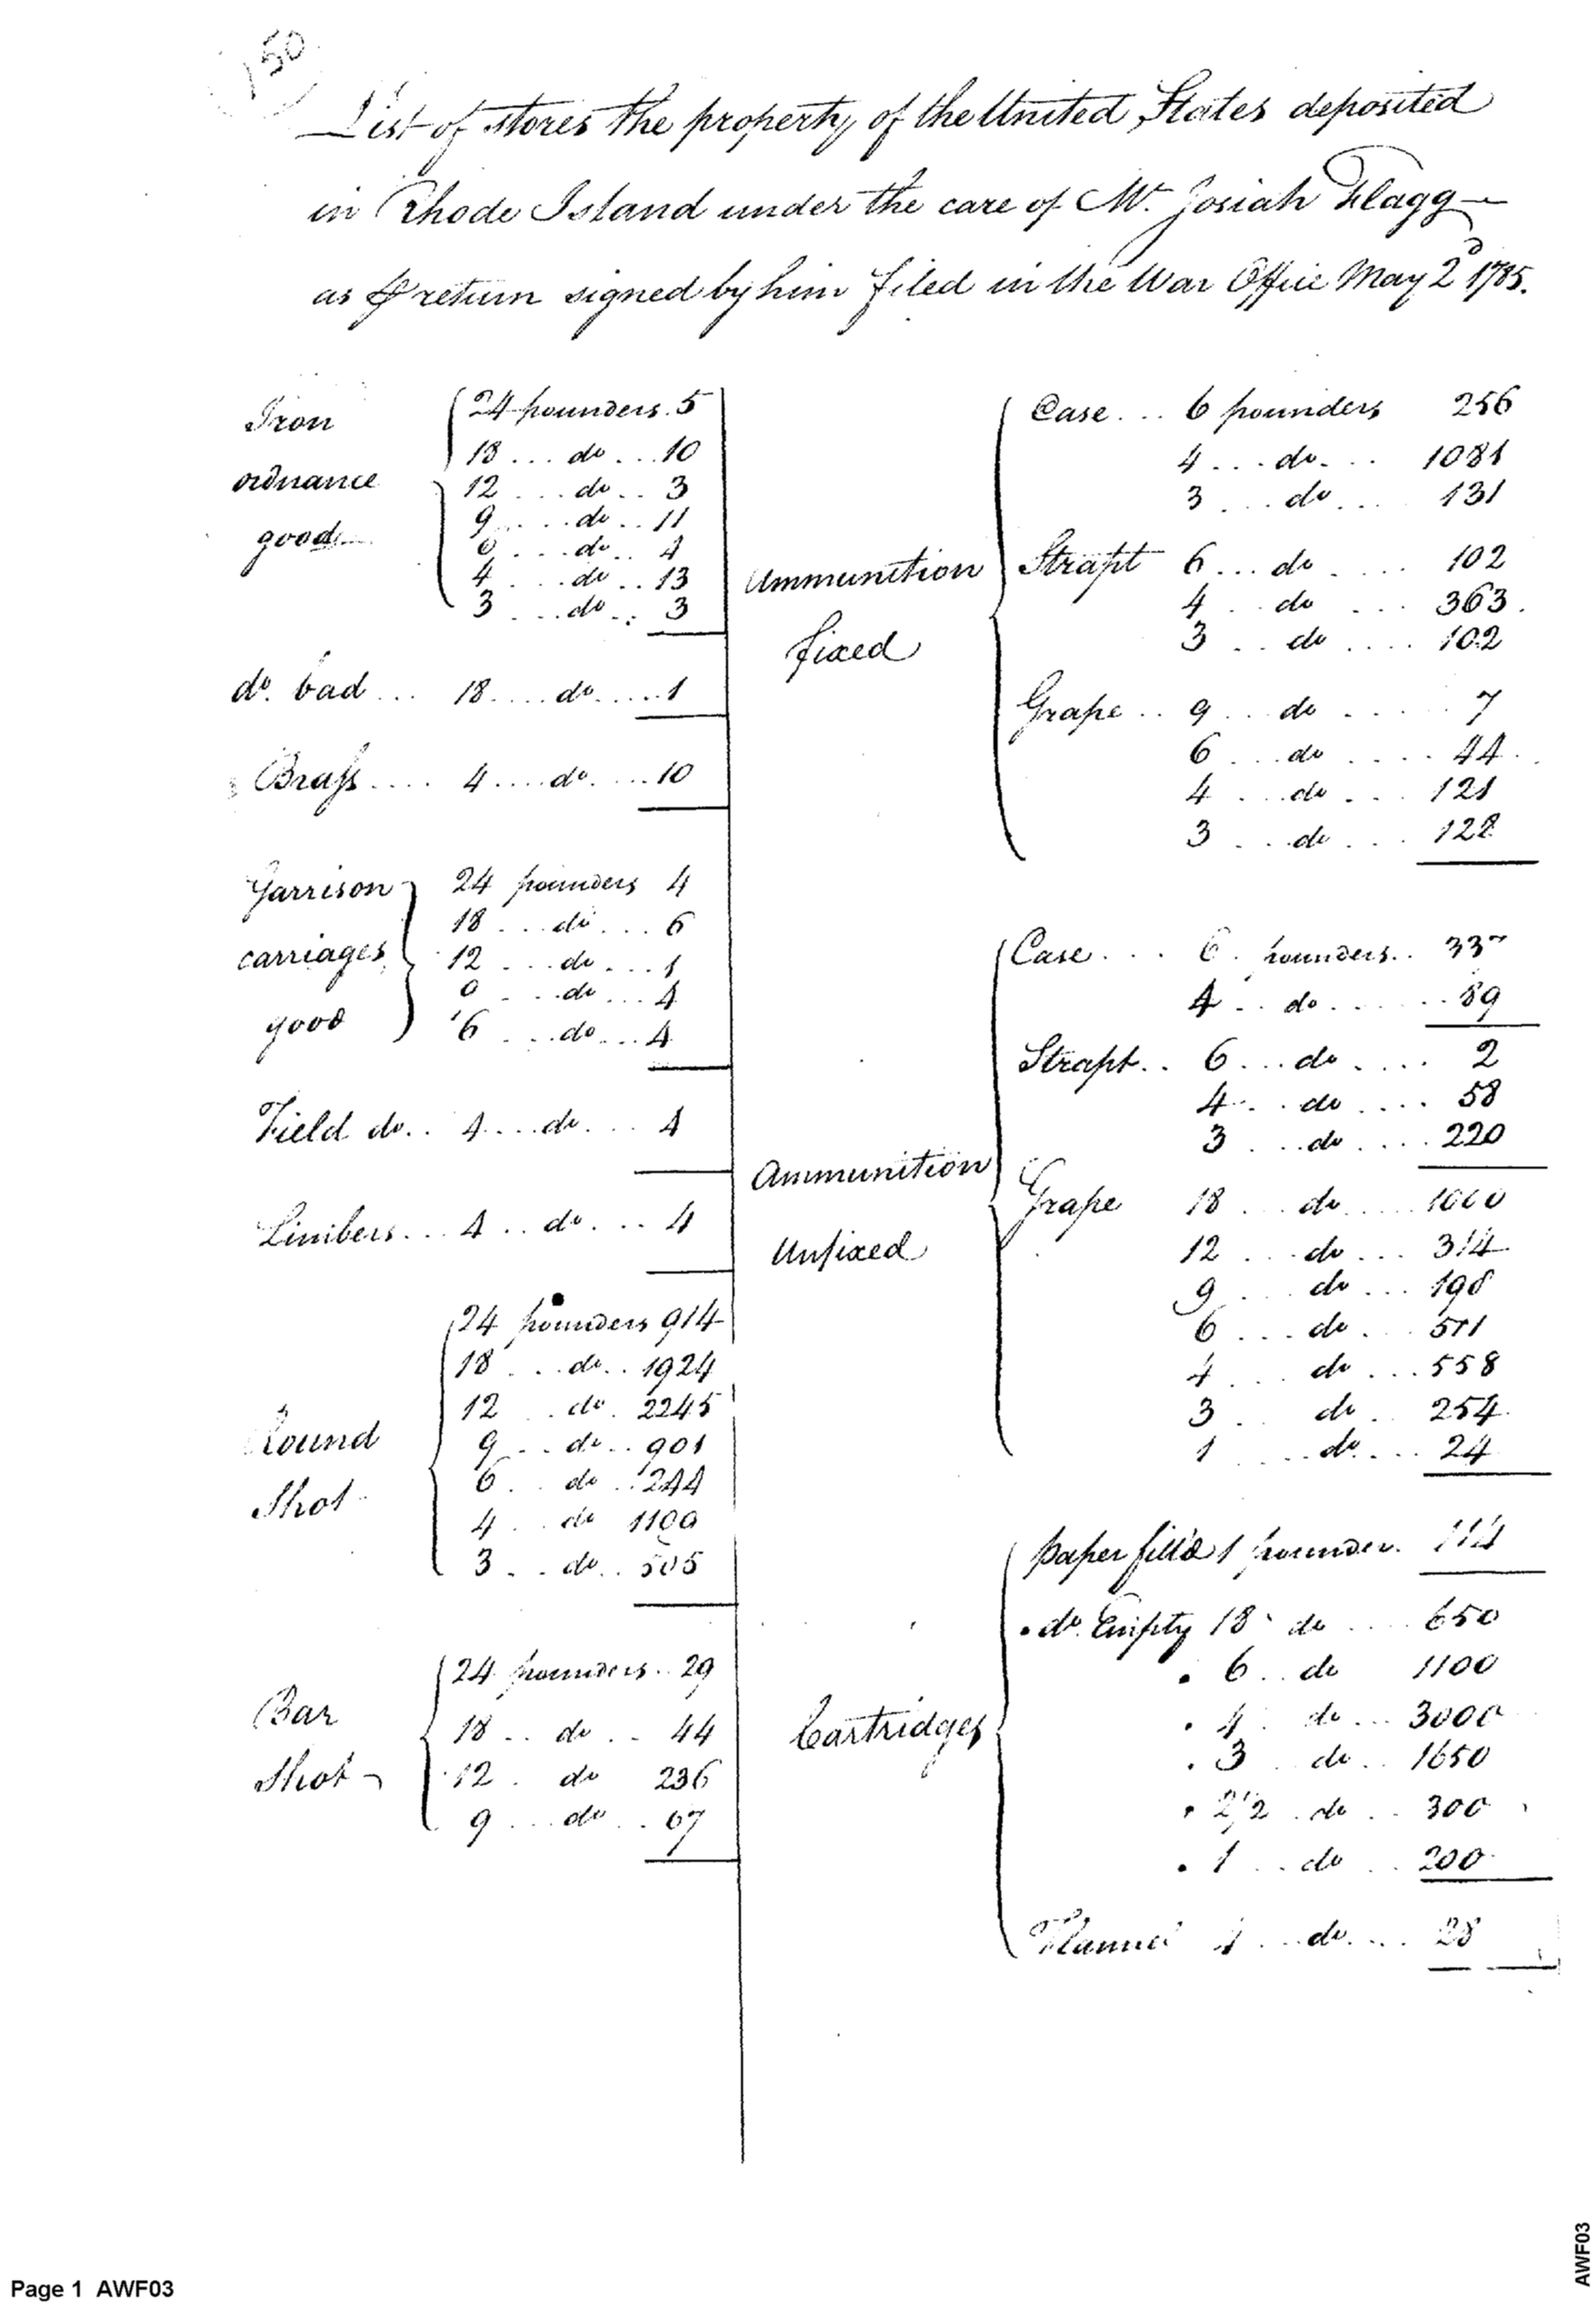 150
List of stores the property of the United States deposited
in Rhode Island under the care of Mr. Josiah Flagg
as ⅌ return signed by him filed in the War Office May 2d 1785.
Iron ordnance good
24 pounders. 5
18 ... do ... 10
12 ... do .. 3
9 .... do .. 11
6 ... do .. 4
4 ... do .. 13
3 ... do .. 3
do. bad ... 18 .... do ..... 1
Brass .... 4 .... do. ... 10
Garrison carriages good
24 pounders 4
18 ... do ... 6
12 ... do ... 1
9 ... do ... 4
6 ... do ... 4
Field do.. 4 ... do. ... 4
Limbers ... 4 .. do. ... 4
Round Shot
24 pounders 914
18 ... do .. 1924
12 .. do. 2245
9 ... do .. 901
6 .. do .. 244
4 .. do 1100
3 .. do .. 505
Bar Shot
24 pounders .. 29
18 .. do .. 44
12 . do 236
9 ... do .. 67
Ammunition fixed
Case ... 6 pounders 256
4 ... do. ... 1081
3 ... do ... 131
Strapt 6 ... do .... 102
4 .. do ... 363.
3 .. do .... 102
Grape .. 9 ... do .... 7
6 ... do .... 44
4 ... do ... 121
3 ... do ... 122
Ammunition Unfixed
Case ... 6 . pounders..
4 .. do ...... 89
Strapt .. 6 ... do .... 2
4 .. do .... 58
3 ... do .... 220
Grape 18 ... do ..... 1000
12 ... do ... 314
9 ... do ... 198
6 ... do. ...
4 ... do ... 558
3 .. do .. 254
1 ... do. ... 24
Cartridges
paper fill'd 1 pounder. 114
do. Empty 18 do .... 650
6 .. do 1100
4 . do ... 3000
3 . do .. 1650
2 1/2 . do .. 300
1 .. do .. 200
Flannel 4 ... do. ... 28
Page 1 AWF03
AWF03